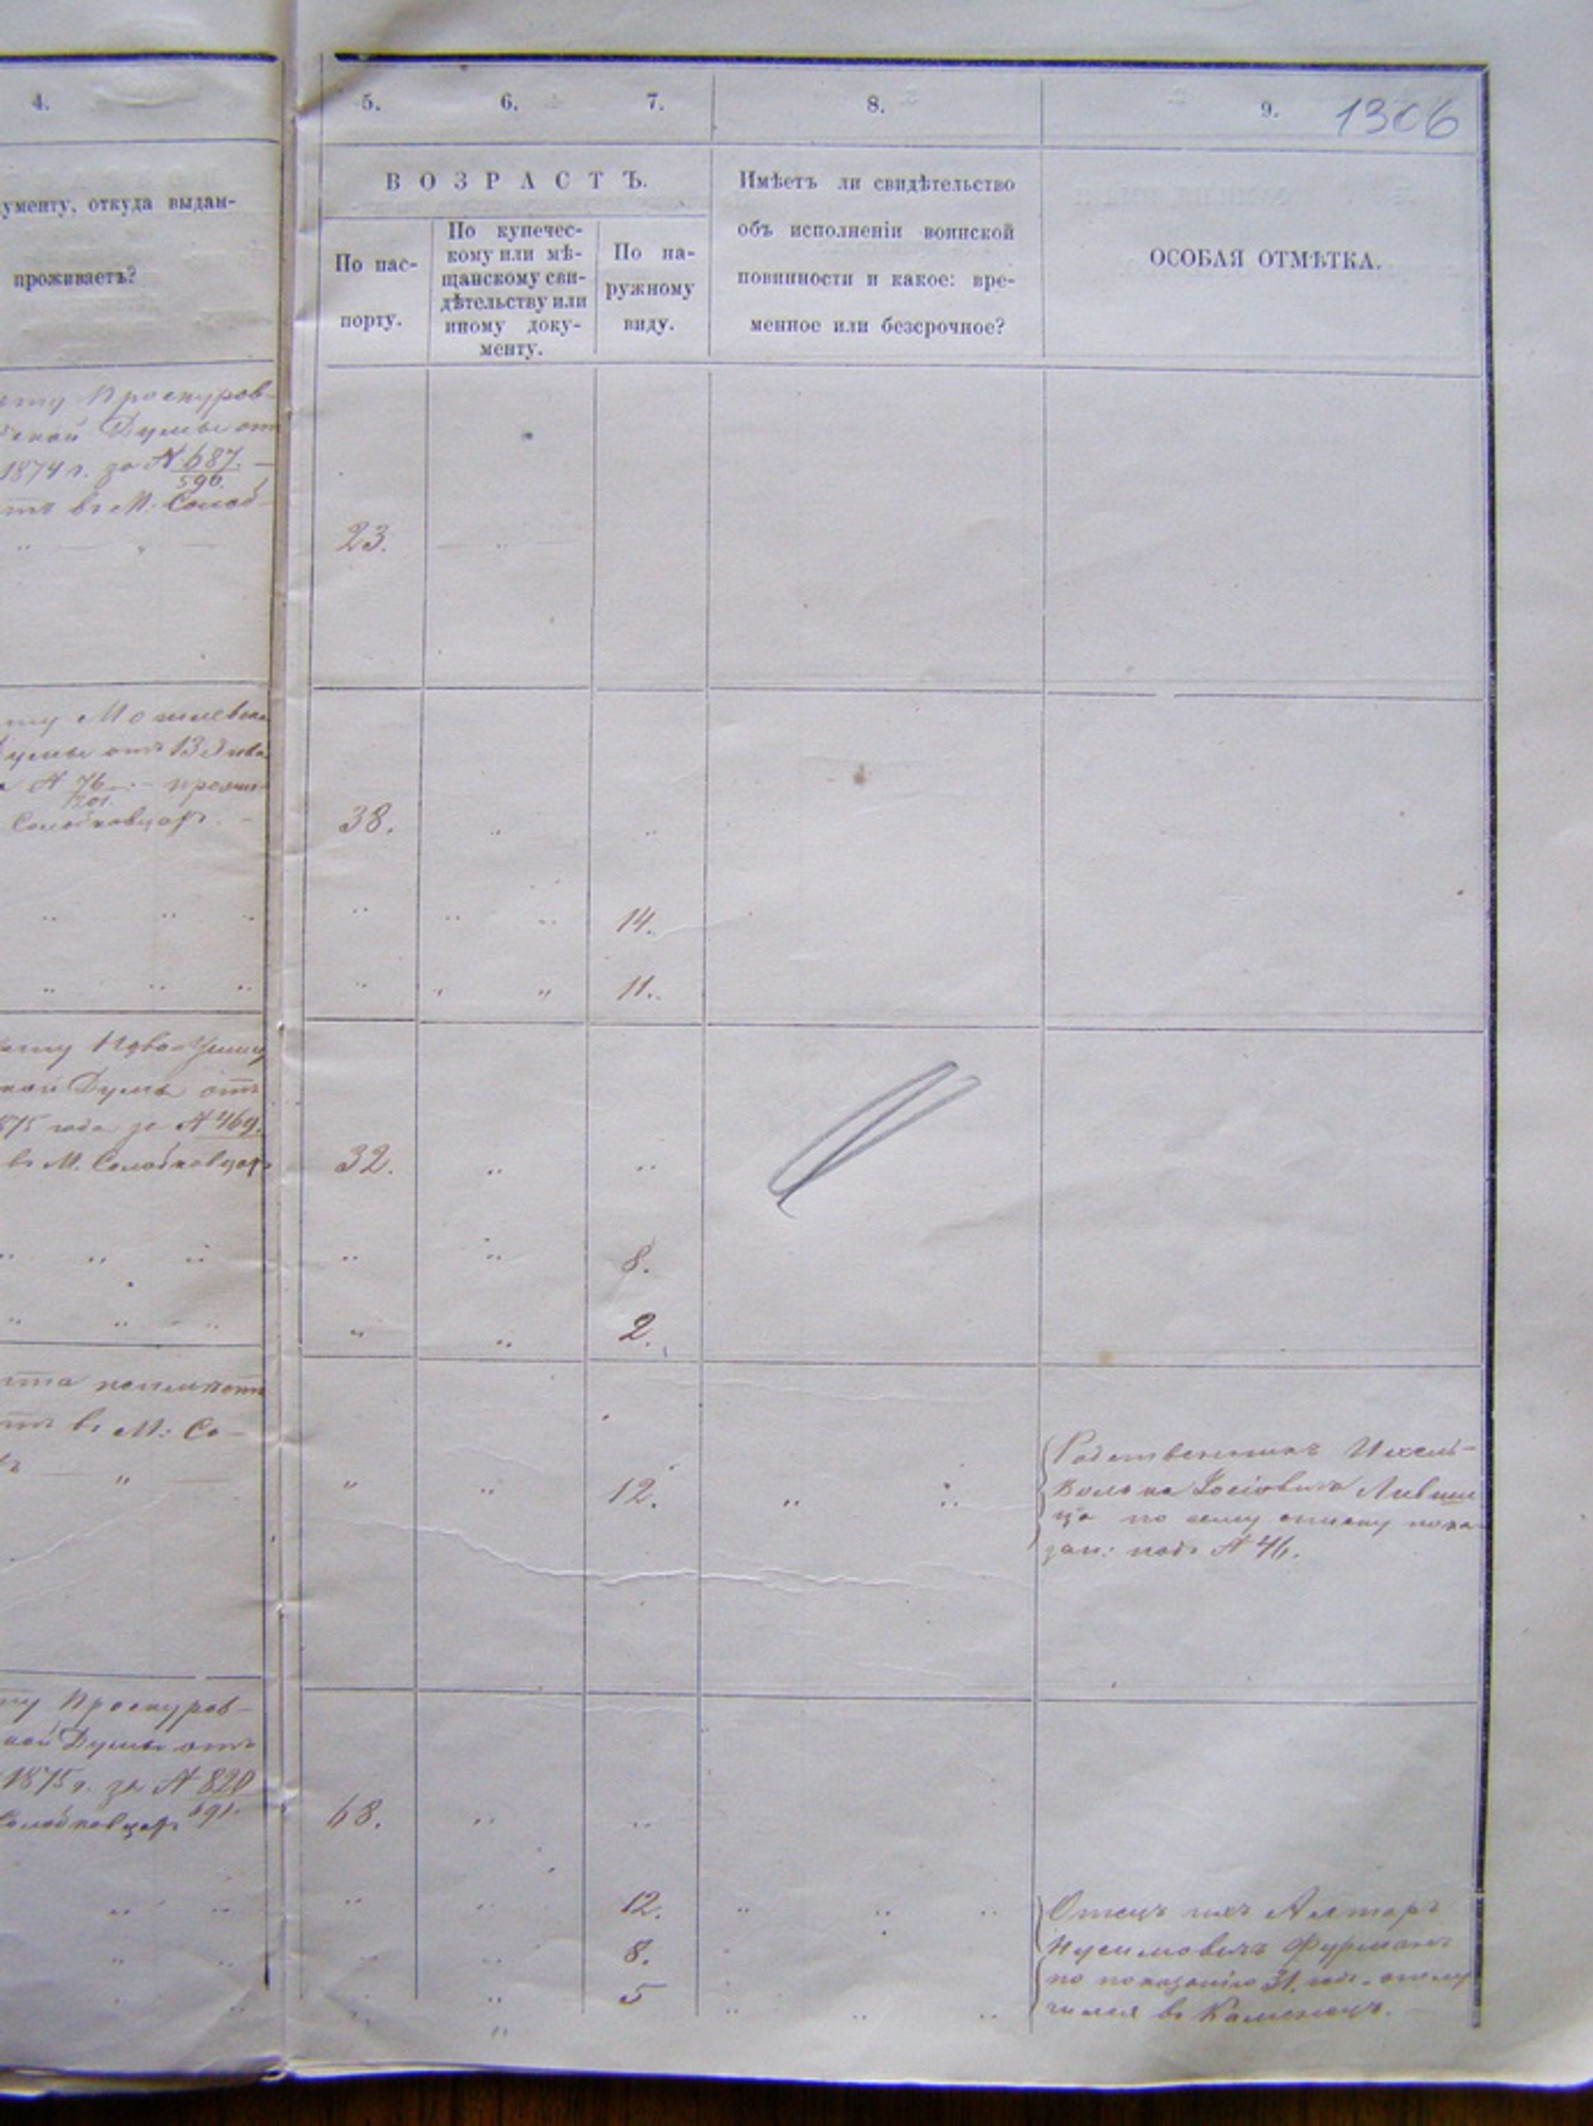 4.
5.
6.
7.
8.
9.
1306
ументу, откуда выдан-
проживаетъ?
ВОЗРАСТЪ.
По пас-
порту.
По купечес-
кому или мѣ-
щанскому сви-
дѣтельству или
иному доку-
менту.
По на-
ружному
виду.
Имѣетъ ли свидѣтельство
объ исполненіи воинской
повинности и какое: вре-
менное или безсрочное?
ОСОБАЯ ОТМѢТКА.
Проскуров-
ской Думы отъ
1874 г. за № 687.
596.
въ М. Солоб-
23.
Думы отъ 13
№ 76
201.
Солобковцахъ.
38.
14.
11.
Ново-Ушиц
кой Думы отъ
875 года за № 469.
въ М. Солобковцахъ
32.
8.
2.
въ М. Со-
12.
Родственникъ Ихель-
Волька Іосіовича Ливши
ца по сему списку пока-
зан: подъ № 46.
Проскуров-
кой Думы отъ
1875 г. за № 820
691.
Солобковцахъ
68.
12.
8.
5
Отецъ ихъ Алтеръ
Нусимовичъ Фурманъ
по показанію 31
въ Каменецъ.